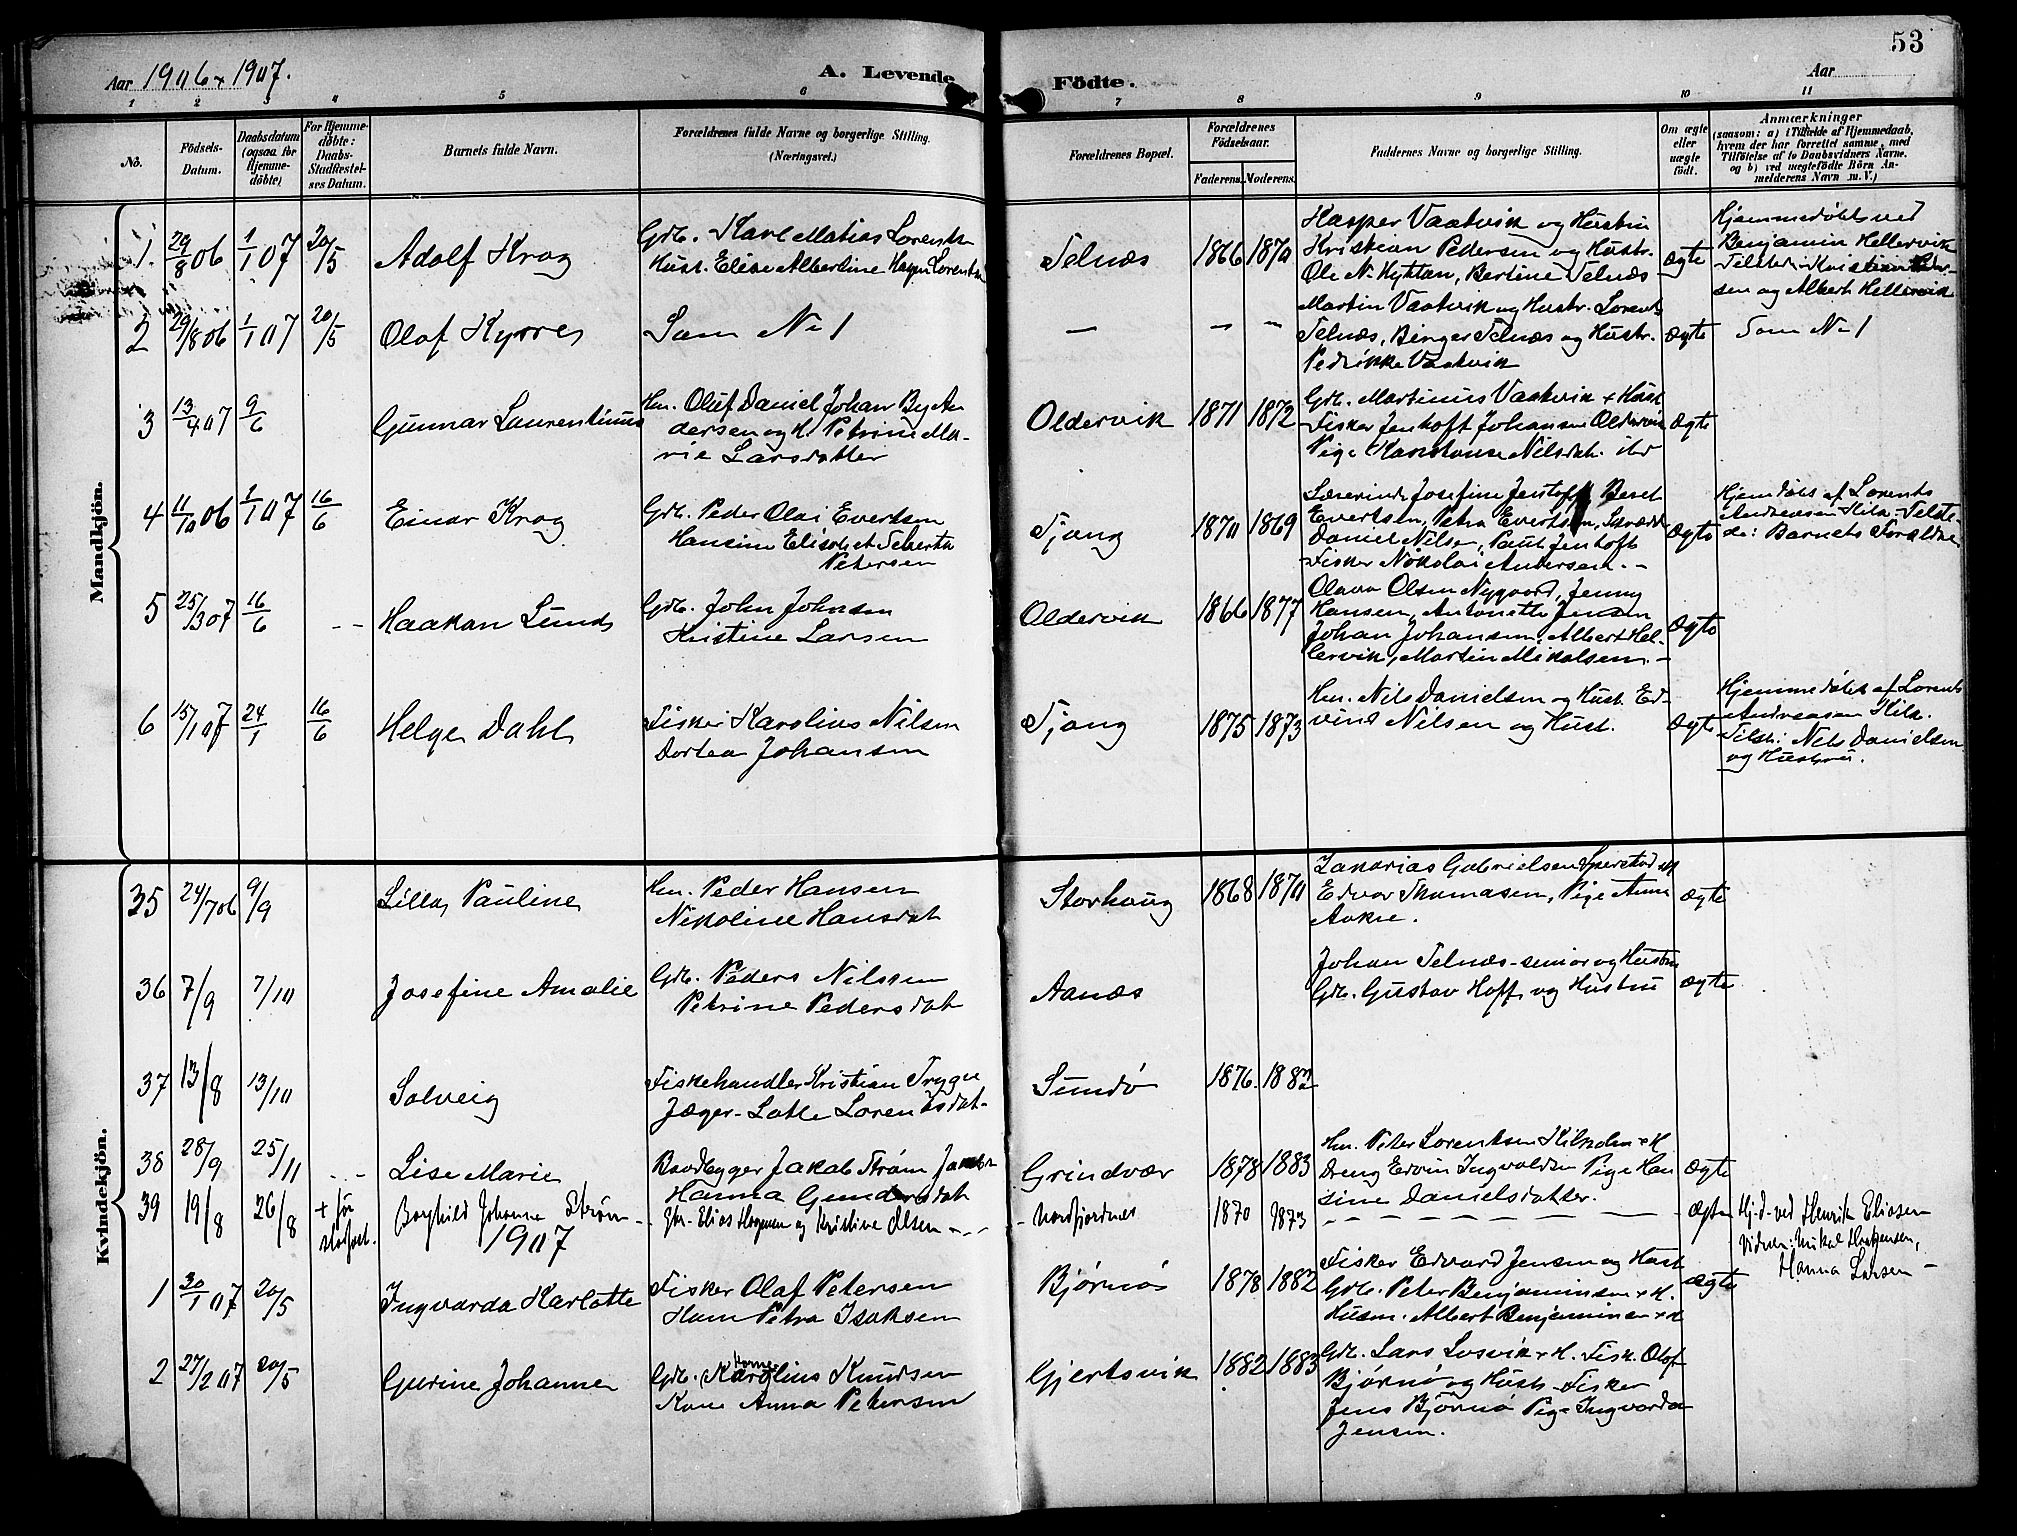 53
Aar 1906 & 1907.
A. Levende Födte.
Aar
1 2 3 4 5 6 7 8 9 10 11
No.
Födsels-Datum.
Daabsdatum (ogsaa for Hjemmedöbte)
For Hjemmedöbte: Daabs-Stadfæstelses Datum.
Barnets fulde Navn.
Forældrenes fulde Navne og borgerlige Stilling.
(Næringsvei.)
Forældrenes Bopæl.
Forældrenes Födselsaar.
Faderens. Moderens.
Faddernes Navne og borgerlige Stilling.
Om ægte eller uægte födt.
Anmærkninger
(saasom: a) i Tilfælde af Hjemmedaab, hvem der har forrettet samme, med Tilföielse af to Daabsvidners Navne. og b) ved uægtefödte Börn Anmelderens Navn m. V.)
Mandkjön.
1. 29/8 06 1/1 07 20/5 Adolf Krog
Grdb. Karl Matias Lorents
Hust. Elise Albertine Lorents
Telnæs 1866 1870
Kasper Vaatvik og Hustru
Kristian Pedersen og Hustr.
Ole N. Bertine Telnæs
ægte
Hjemmedøbt ved
Benjamin Hellervik
sen og Albert Hellervik
2 29/8 06 1/1 07 20/5 Olaf Kyrre
Som No 1
— — —
Martin Vaatvik og Hustr. Lorents
Telnæs, Birger Telnæs og Hustr.
Pedrikke Vaatvik
ægte
Som No 1
3 13/4 07 9/6 Gunnar Laurentinius
Hm. Oluf Daniel Johan By An
dersen og H. Petrine Ma-
rie Larsdatter
Oldervik 1871 1872
Grdb. Martinus Vaatvik + Hust
Fisker Jentoft Johansen Oldervik
Pige Konstanse Nilsdat. ibd
ægte
4 11/10 06 1/1 07 16/6 Einar Krog
Grdb. Peder Olai Evertsen
Hansine Elisabet
Petersen
Tjong 1870 1869
Lærerinde Josefine Jentoft Beret
Evertsen, Petra Evertsen,
Daniel Nilsen, Paul Jentoft
Fisker Nikolai Andersen. -
ægte
Hjemdøbt af Lorents
Andreasen Kila. Tilste-
de: Barnets Forældre
5 25/3 07 16/6 - - Haakon Lund
Grdb. John Johnsen
Kristine Larsen
Oldervik 1866 1877
Olava Olsen Nygaard, Jenny
Hansen, Antonette Jensen
Johan Johansen, Albert Hel-
lervik, Martin Mikalsen. -
ægte
6 15/1 07 24/1 16/6 Helge Dahl
Fisker Karolius Nilsen
Dortea Johansen
Tjong 1875 1873
Hm. Nils Danielsen og Hust. Ed-
vind Nilsen og Hust.
ægte
Hjemmedøbt af Lorents
Andreasen Kila.
Tilst: Nils Danielsen
og Hustru.
Kvindekjön.
35 24/7 06 9/9 Lilla Pauline
Hm. Peder Hansen
Nikoline Hansdat
Storhaug 1868 1870
Zakarias Gabrielsen Sperstad + H
Edvar Thomasen, Pige Anna
Aakre.
ægte
36 7/9 7/10 Josefine Amalie
Grdb. Peders Nilssen
Petrine Pedersdat
Aanæs
Johan Telnæs senior og Hustru
Grdb. Gustav Hoff og Hustru
ægte
37 13/8 13/10 Solveig
Fiskehandler Kristian Trygve
Jæger - Lotte Lorentsdat-
Sundø 1876. 1882
38 28/9 25/11 - - Lise Marie
Baadbygger Jakob Strøm
Hanna Gundersdat
Grindvær 1878 1883
Hm. Peter Lorentsen Kilholm + H
Dreng Edvin Ingvaldsen Pige Han
sine Danielsdatter.
ægte
39 19/8 26/8 + før stadfæst. Borghild Johanne Strøm -
Gbr. Elias Hagensen og Kristine Olsen - - -
- Nordfjordnes 1870 1873
- - - - - - - -
ægte
Hj.d. ved Henrik Eliasen
Vidner: Mikal
Hanna Larsen -
1907
1 30/1 07 20/5 Ingvarda Karlotte
Fisker Olaf Petersen
Petra Isaksen
Bjørnø 1878 1882
Fisker Edvard Jensen og Hust
Grdb. Peter Benjaminsen + H.
Husm. Albert Benjaminsen + H
ægte
2 27/2 07 20/5 Gurine Johanne
Grdb. Karolius Knudsen
Kone Anna Petersen
Gjertsvik 1882 1883
Grdb. Lars Losvik + H. Fisk. Olaf
Bjørnø og Hustr. Fisker
Jens Bjørnø Pige Ingvarda
Jensen.